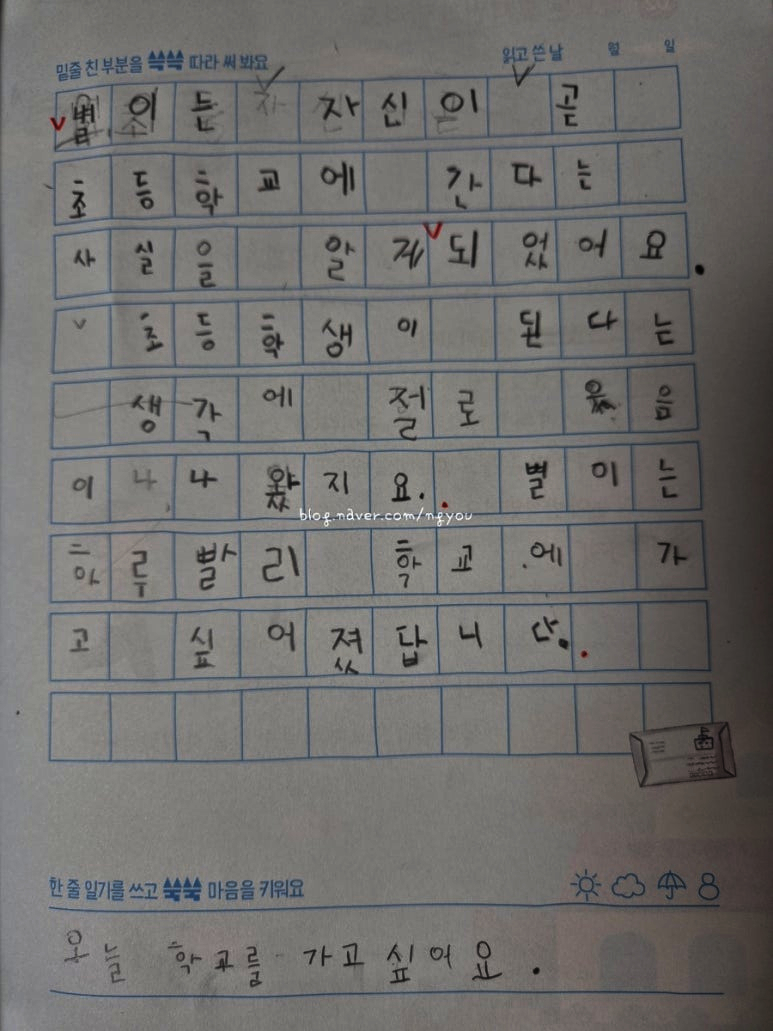 밑줄 친 부분을 쓱쓱 따라 써 봐요
읽고 쓴 날 월 일
별이는 자신이 곧
초등학교에 간다는
사실을 알게 되었어요.
초등학생이 된다는
생각에 절로 웃음
이 나나왔지요. 별이는
하루빨리 학교에 가
고 싶어졌답니다.
blog.naver.com/ngyou
한 줄 일기를 쓰고 쑥쑥 마음을 키워요
오늘 학교를 가고 싶어요.